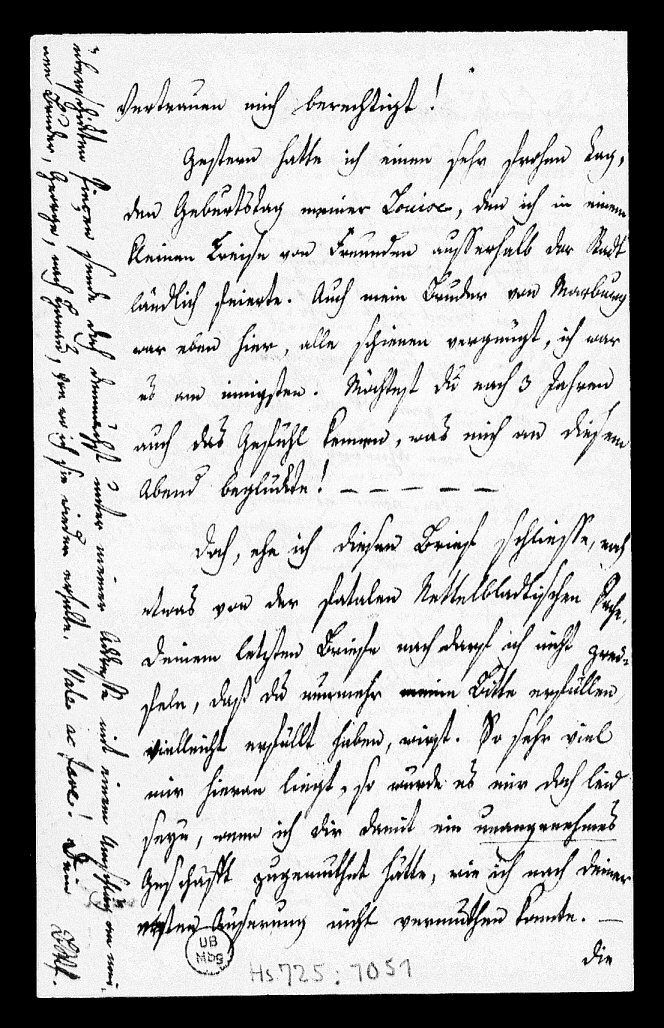 Vertrauen mich berechtigt!
Gestern hatte ich einen sehr frohen Tag,
den Geburtstag meiner Louise, den ich in einem
kleinen Creise von Freunden ausserhalb der Stadt
ländlich feierte. Auch mein Bruder von Marburg
war eben hier, alle schienen vergnügt, ich war
es am innigsten. Möchtest du nach 3 Jahren
auch das Gefühl kennen, was mich an diesem
Abend beglückte! — — — — —
Doch, ehe ich diesen Brief schliesse, noch
etwas von der fatalen Nettelbladtischen Sache.
Deinem letzten Briefe nach darf ich nicht zwei-
feln, daß du nunmehr meine Bitte erfüllen,
vielleicht erfüllt haben, wirst. So sehr viel
mir hieran liegt, so würde es mir doch leid
seyn, wenn ich dir damit ein unangenehmes
Geschäfft zugemuthet hätte, wie ich nach deiner
ersten Äuserung nicht vermuthen konnte. —
die
sende doch demnächst unter meiner Addresse mit einem Umschlag an
Bruder, George, nach, von wo ich sie wieder erhalte. Vale ac fave! Dein
UB
Mbg
Hs 725 : 1051